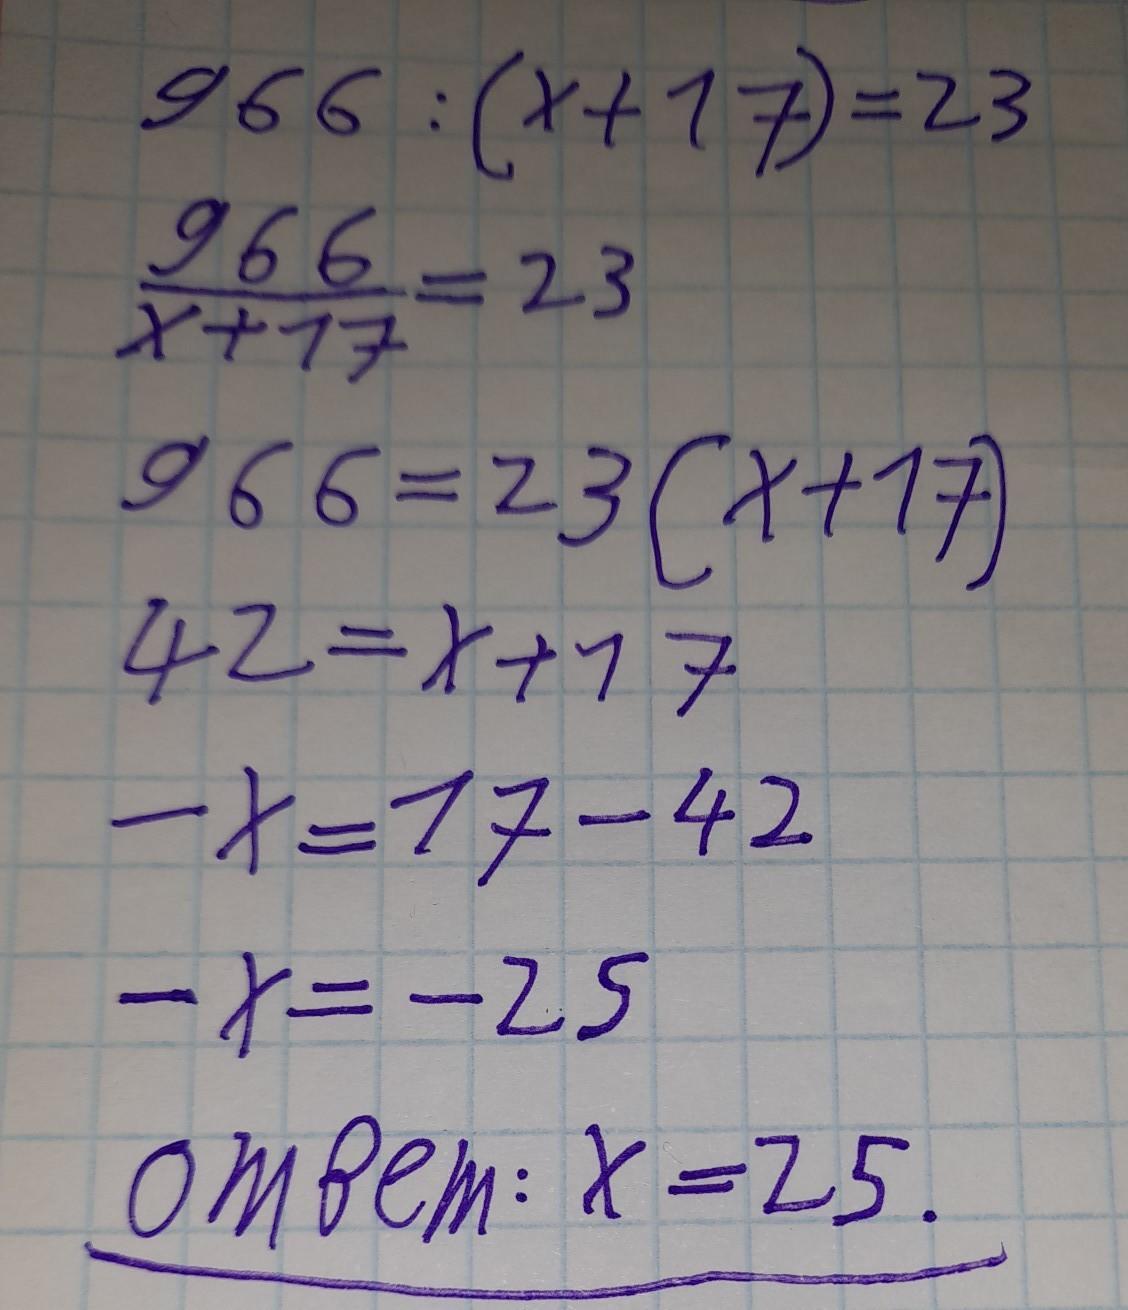 966 : (x+17)=23
966
x+17 = 23
966=23(x+17)
42=x+17
-x=17-42
-x=-25
ответ: x=25.